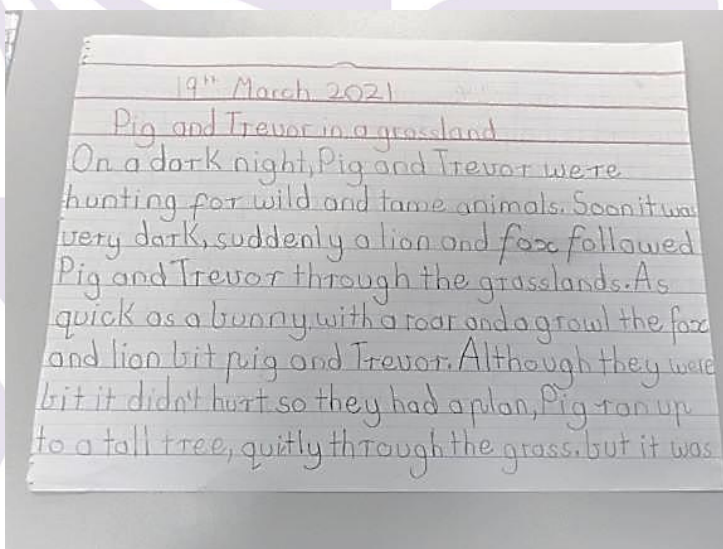 19th March 2021
Pig and Trevor in a grassland
On a dark night, Pig and Trevor were
hunting for wild and tame animals. Soon it was
very dark, suddenly a lion and fox followed
Pig and Trevor through the grasslands. As
quick as a bunny, with a roar and a growl the fox
and lion bit pig and Trevor. Although they were
bit it didn't hurt so they had a plan, Pig ran up
to a tall tree, quitly through the grass. but it was